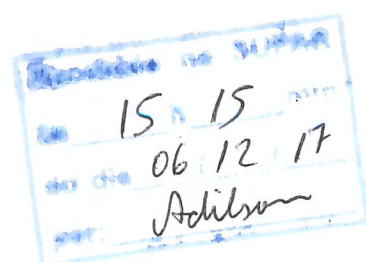 Recebido na SUPAR
às 15 h 15 min
do dia 06 / 12 / 17
por: Adilson